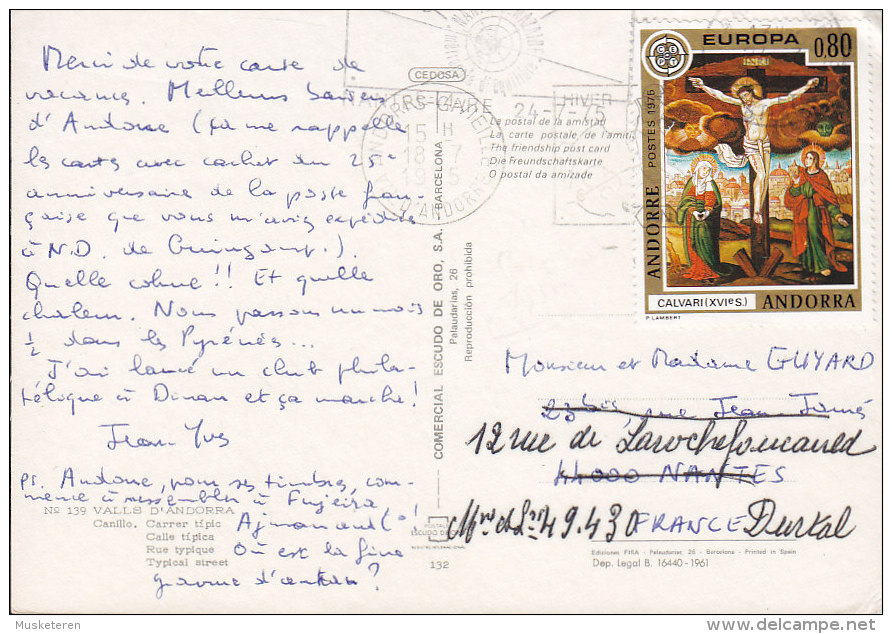 Merci de votre carte de
vacances. Meilleurs baisers
d'Andorre (ça me rappelle
les cartes avec cachet du 25e
anniversaire de la poste fran-
çaise que vous m'aviez expédiées
à N.D. de Guingamp.).
Quelle cohue!! Et quelle
chaleur. Nous passons un mois
½ dans les Pyrénées...
J'ai lancé un club phila-
télique à Dinan et ça marche!
Jean-Yves
PS. Andorre, pour ses timbres, com-
mence à ressembler à Fujeira
Ajman and Co!
Où est la fine
gravure d'antan?
No 139 VALLS D'ANDORRA
Canillo. Carrer típic
Calle típica
Rue typique
Typical street
132
CEDOSA
COMERCIAL ESCUDO DE ORO, S.A. BARCELONA
Palaudarias, 26
Reproducción prohibida
POSTALES
ESCUDO DE ORO
La postal de la amistad
La carte postale de l'amitié
The friendship post card
Die Freundschaftskarte
O postal da amizade
15 H
18-7
D'ANDORRE
24-7-75
HIVER
EUROPA
0,80
CEPT
INRI
POSTES 1975
ANDORRE
CALVARI (XVIe S.)
ANDORRA
P. LAMBERT
Monsieur et Madame GUYARD
23 bis, rue Jean Jaurés
12 rue de Larochefoucaued
44000 NANTES
49.430 FRANCE Durtal
Ediciones FISA - Palaudarias, 26 - Barcelona - Printed in Spain
Dep. Legal B. 16440-1961
Musketeren
www.delcampe.net